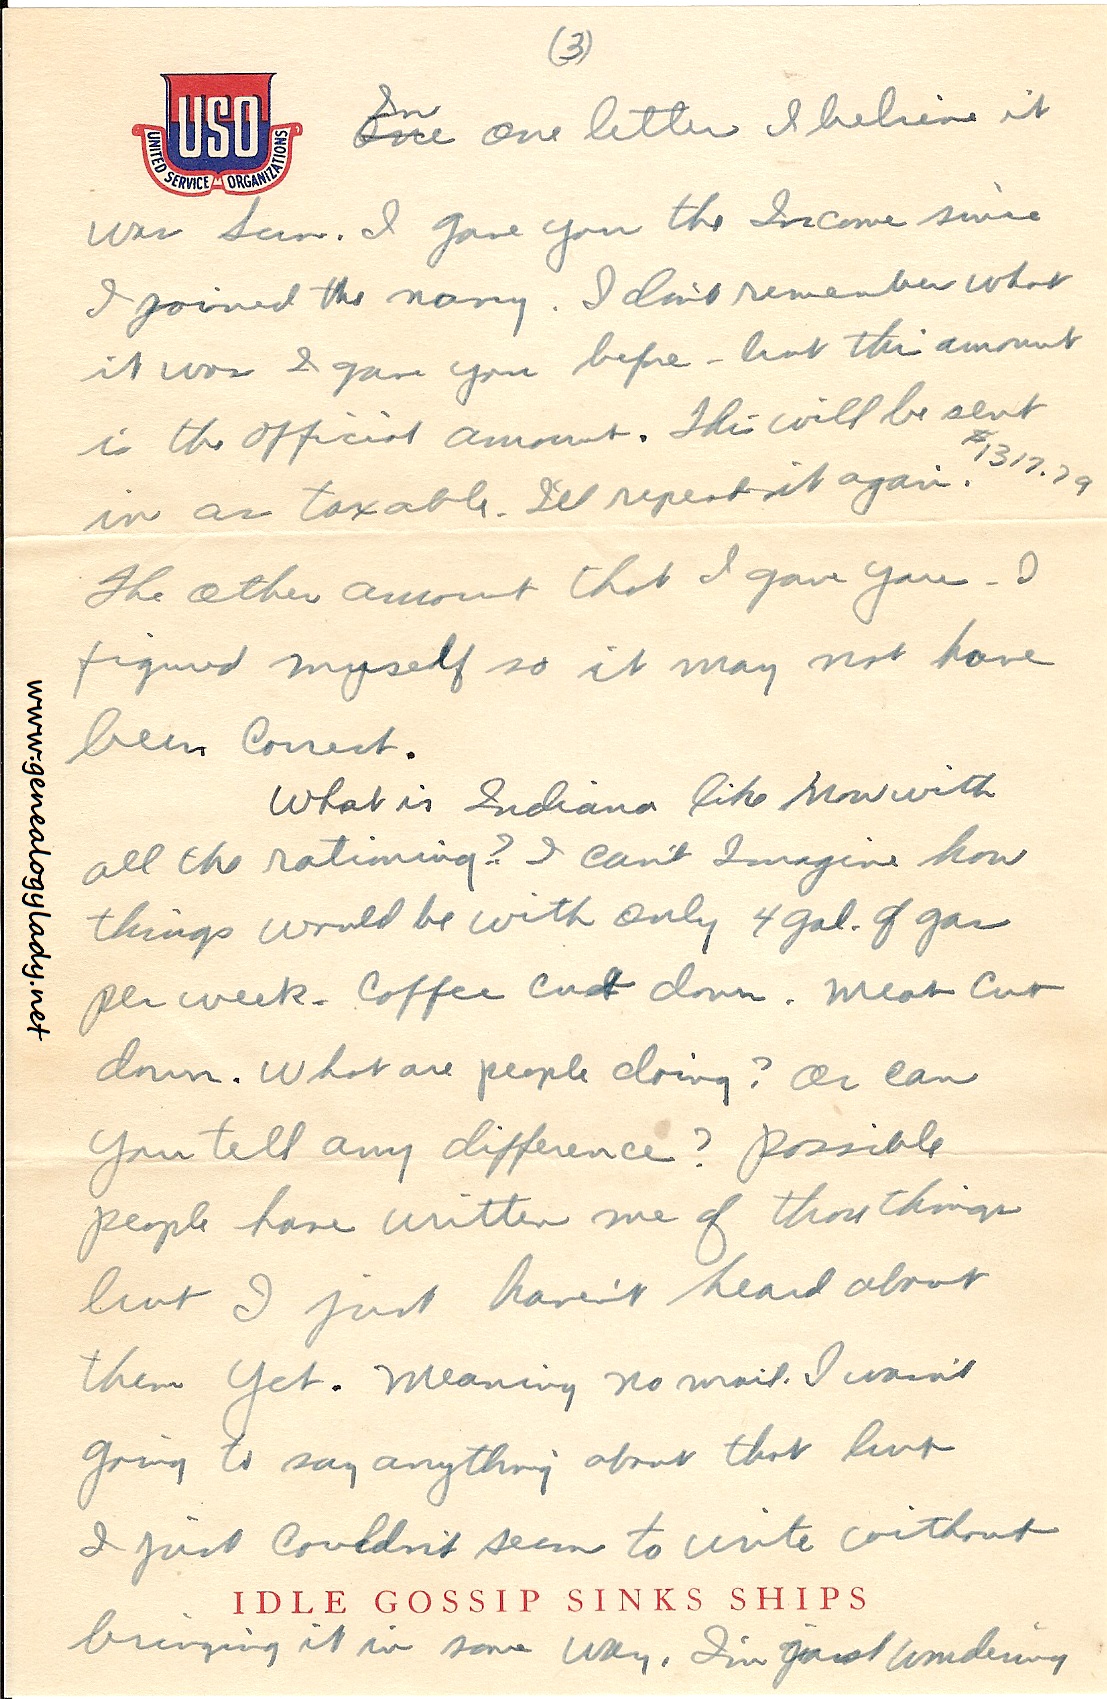 (3)
USO
UNITED SERVICE ORGANIZATIONS
In
one letter I believe it
was Sun. I gave you the Income since
I joined the navy. I don't remember what
it was I gave you before - but this amount
is the official amount. This will be sent
in as taxable. I'll repeat it again. $1317.79
The other amount that I gave you - I
figured myself so it may not have
been correct.
What is Indiana like now with
all the rationing? I can't Imagine how
things would be with only 4 gal. of gas
per week. Coffee cut down. Meat cut
down. What are people doing? Or can
you tell any difference? Possible
people have written me of those things
but I just haven't heard about
them yet. Meaning no mail. I wasn't
going to say anything about that but
I just couldn't seem to write without
IDLE GOSSIP SINKS SHIPS
bringing it in some way. I'm just wondering
www.genealogylady.net